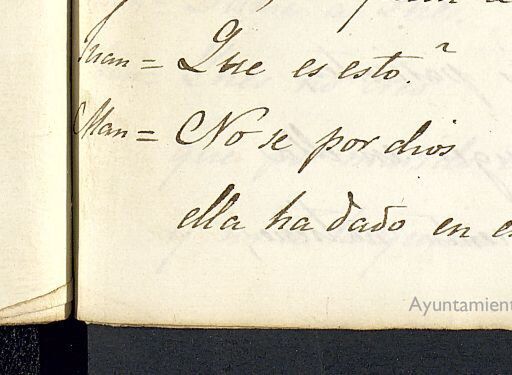 Juan = Que es esto.?
Man = No se por dios
ella ha dado en
Ayuntamient